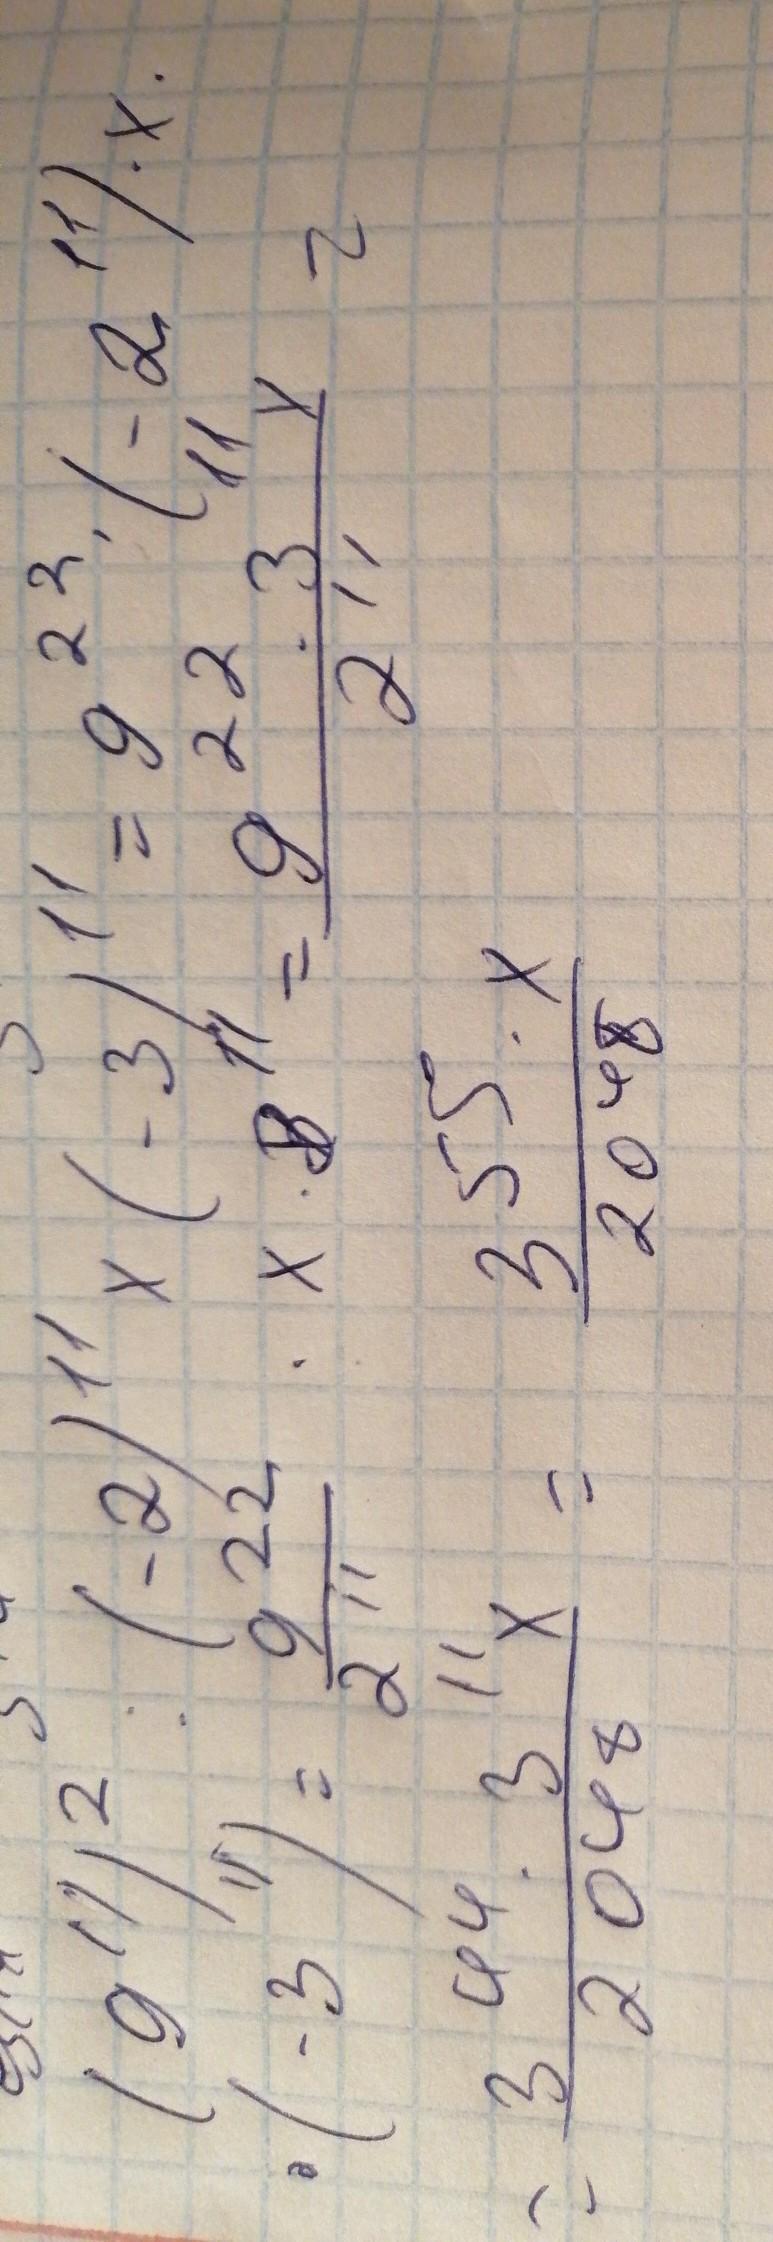 (9¹¹)² : (-2)¹¹ x (-3)¹¹ = 9²² : (-2¹¹) · x ·
· (-3¹¹) = 9²²/2¹¹ · x · 3¹¹ = 9²² · 3¹¹ x/2¹¹ =
= 3⁴⁴ · 3¹¹ x/2048 = 3⁵⁵ · x/2048